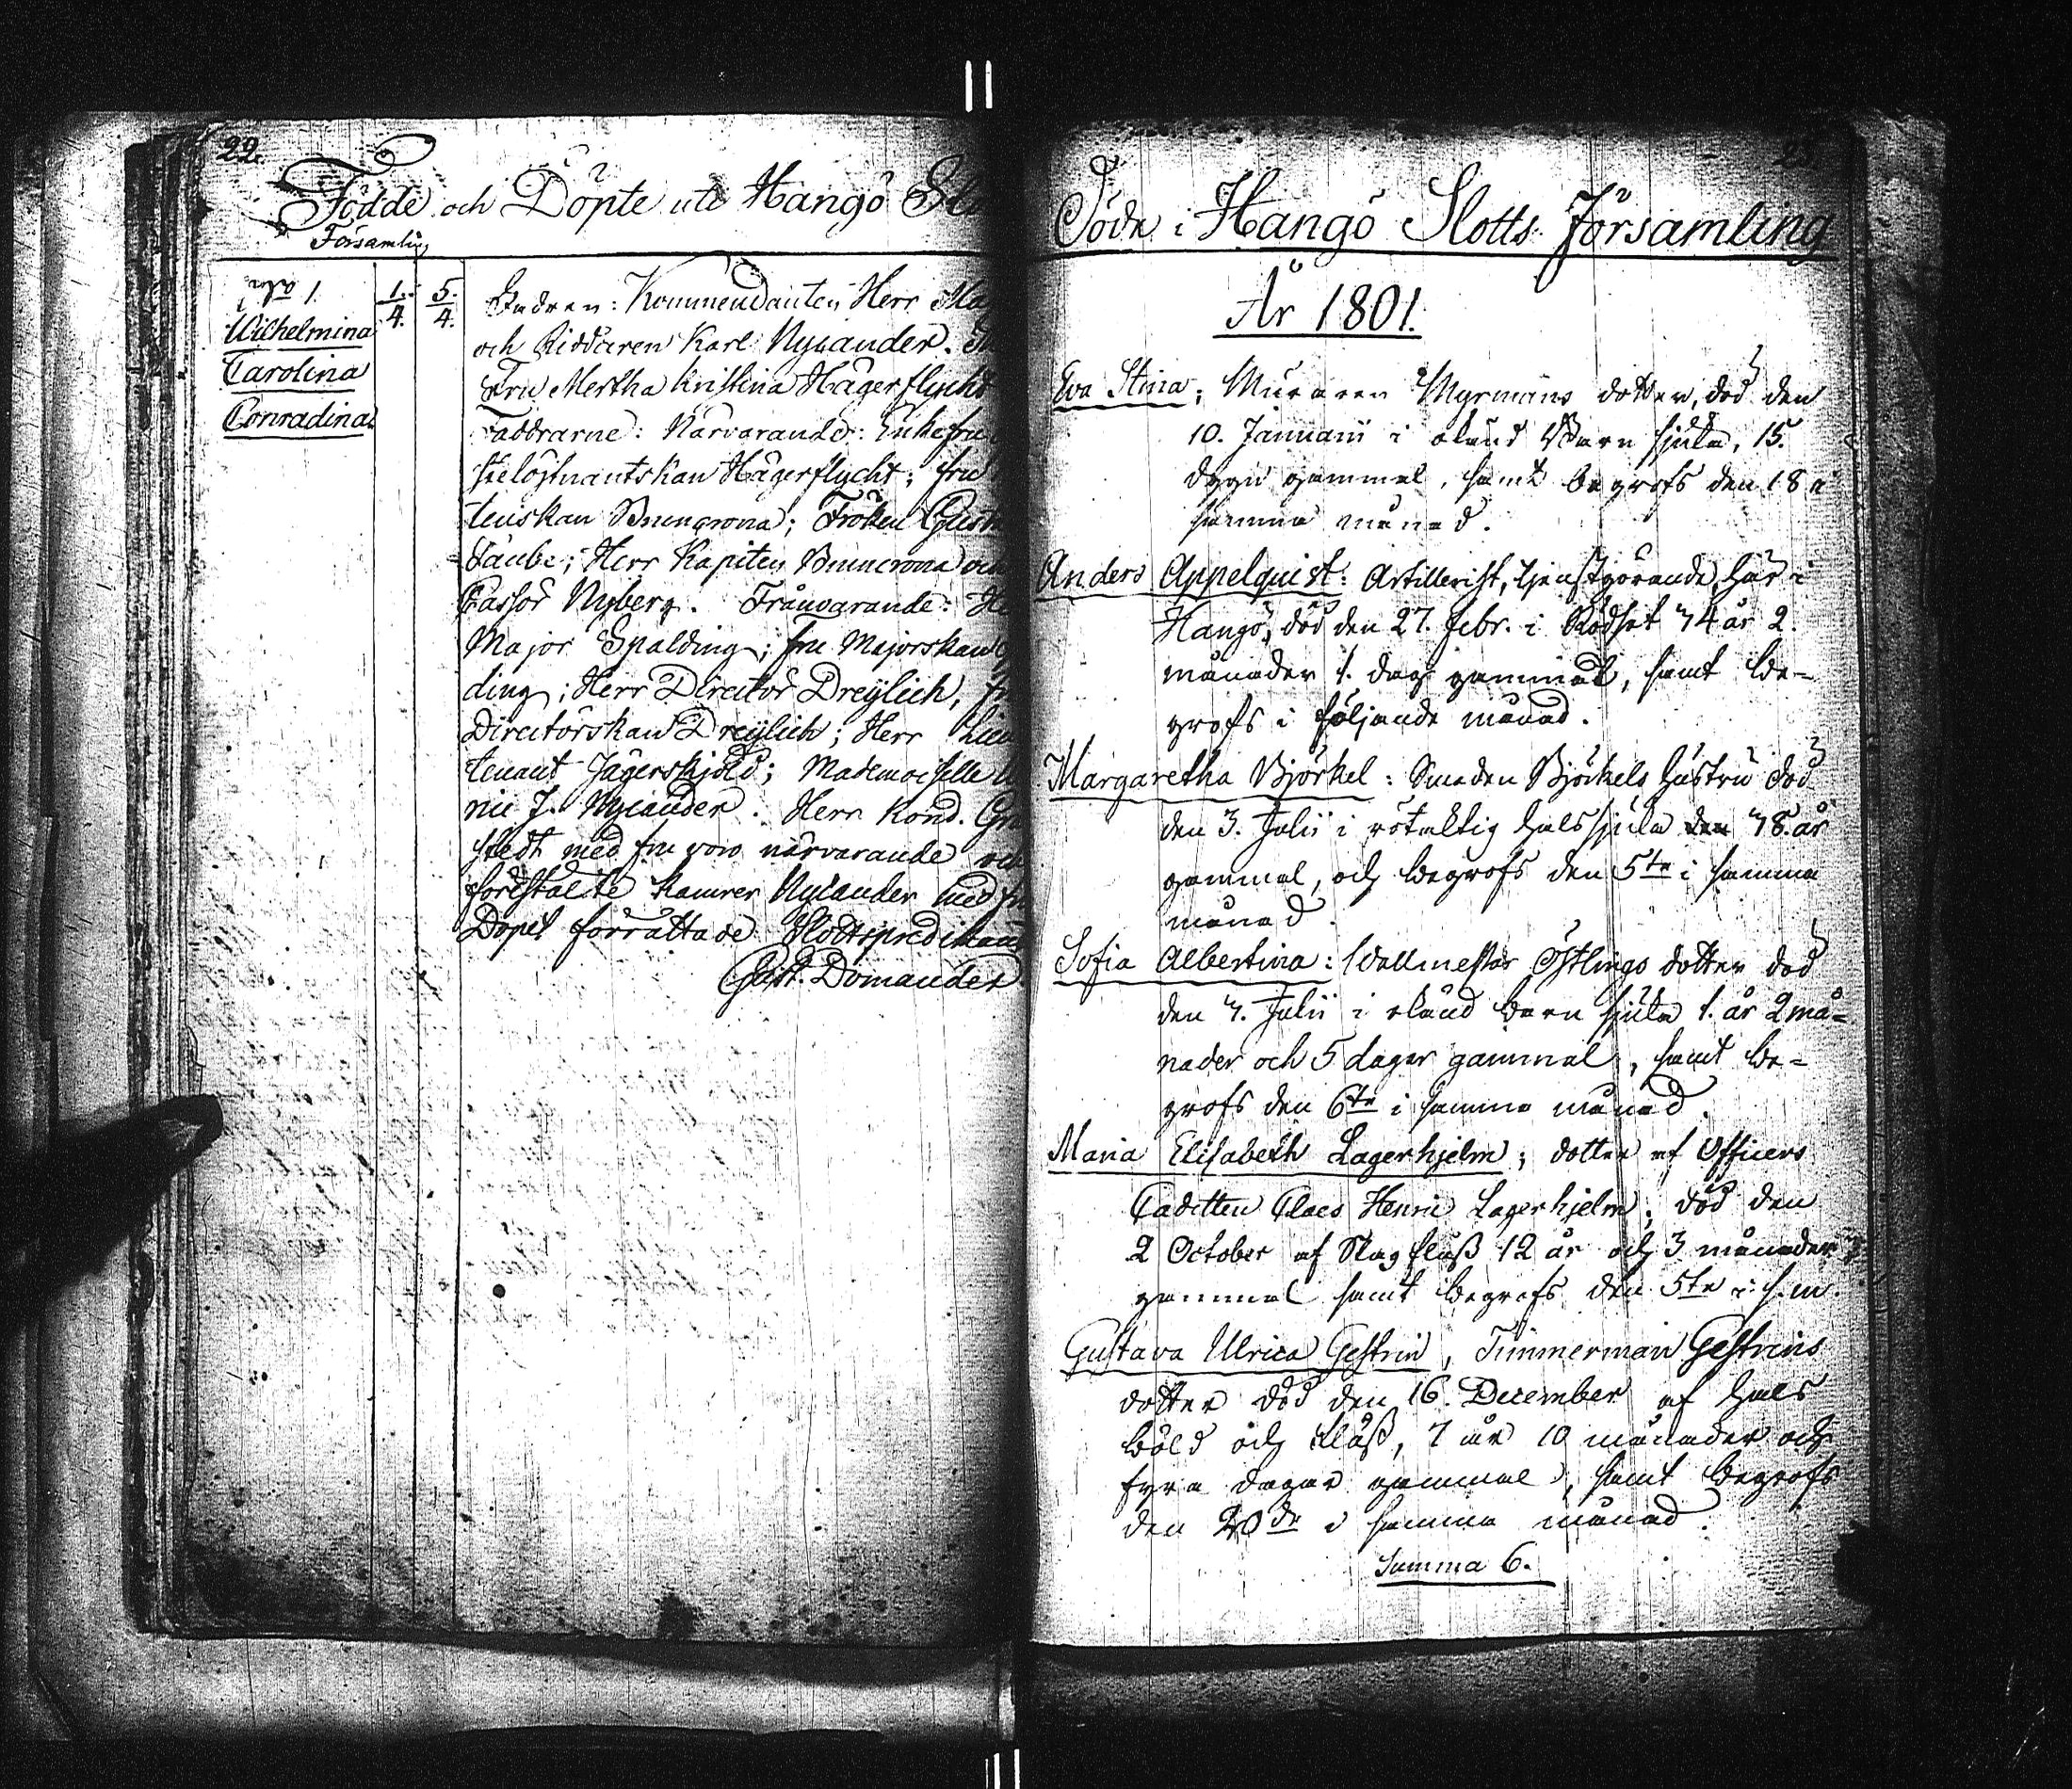 22.
Födde och Döpte uti Hangö
Församling
1.
Wilhelmina
Carolina
Conradina
1. 5.
4. 4.
Fadren: Kommendanten Herr
och Riddaren Karl Nylander.
Fru Mertha Kristina Hägerflycht
Faddrarne: Närvarande: Enkefru
Hägerflycht; fru
Bruncrona; Fröken
Taube; Herr Kapiten Bruncrona och
Nyberg. Frånvarande:
Major Spalding; fru Majorskan
ding; Herr Director Dreijlich,
Directörskan Dreijlich; Herr Lieu
tenant Jägerskjöld; Mademoiselle
J. Nylander. Herr Kond.
stedt med fru voro närvarande
förestälte Kamrer Nylander med
Dopet förrättade Slottspredikanten
Gust. Domander
Döde i Hangö Slotts Församling
År 1801.
Eva Stina; Muraren Myrmans dotter, död den
10. Januarii i okänd Barn sjuka, 15.
dygn gammal, samt begrofs den 18 i
samma månad.
Anders Appelquist: Artillerist, tjenstgörande här i
Hangö, död den 27. febr. i Rödsot 74 år 2.
månader 1. dag gammal, samt be-
grofs i följande månad.
Margaretha Björkel: Smeden Björkels hustru död
den 3. Julii i rötaktig halssjuka 78. år
gammal, och begrofs den 5te i samma
månad.
Sofia Albertina: Wallmestar Östlings dotter död
den 4. Julii i okänd barn sjuka 1. år 2 må-
nader och 5 dagar gammal, samt be-
grofs den 6te i samma månad.
Maria Elisabeth Lagerhjelm; dotter af Officers
Cadetten Claes Henric Lagerhjelm; död den
2 October af Slag fluß 12 år och 3 månader
gammal samt begrofs den 5te i s. m.
Gustava Ulrica Gestrin, Timmerman Gestrins
dotter död den 16. December af hals
böld och fluß, 7 år 10 månader och
fyra dagar gammal, samt begrofs
den 20de i samma månad.
Summa 6.